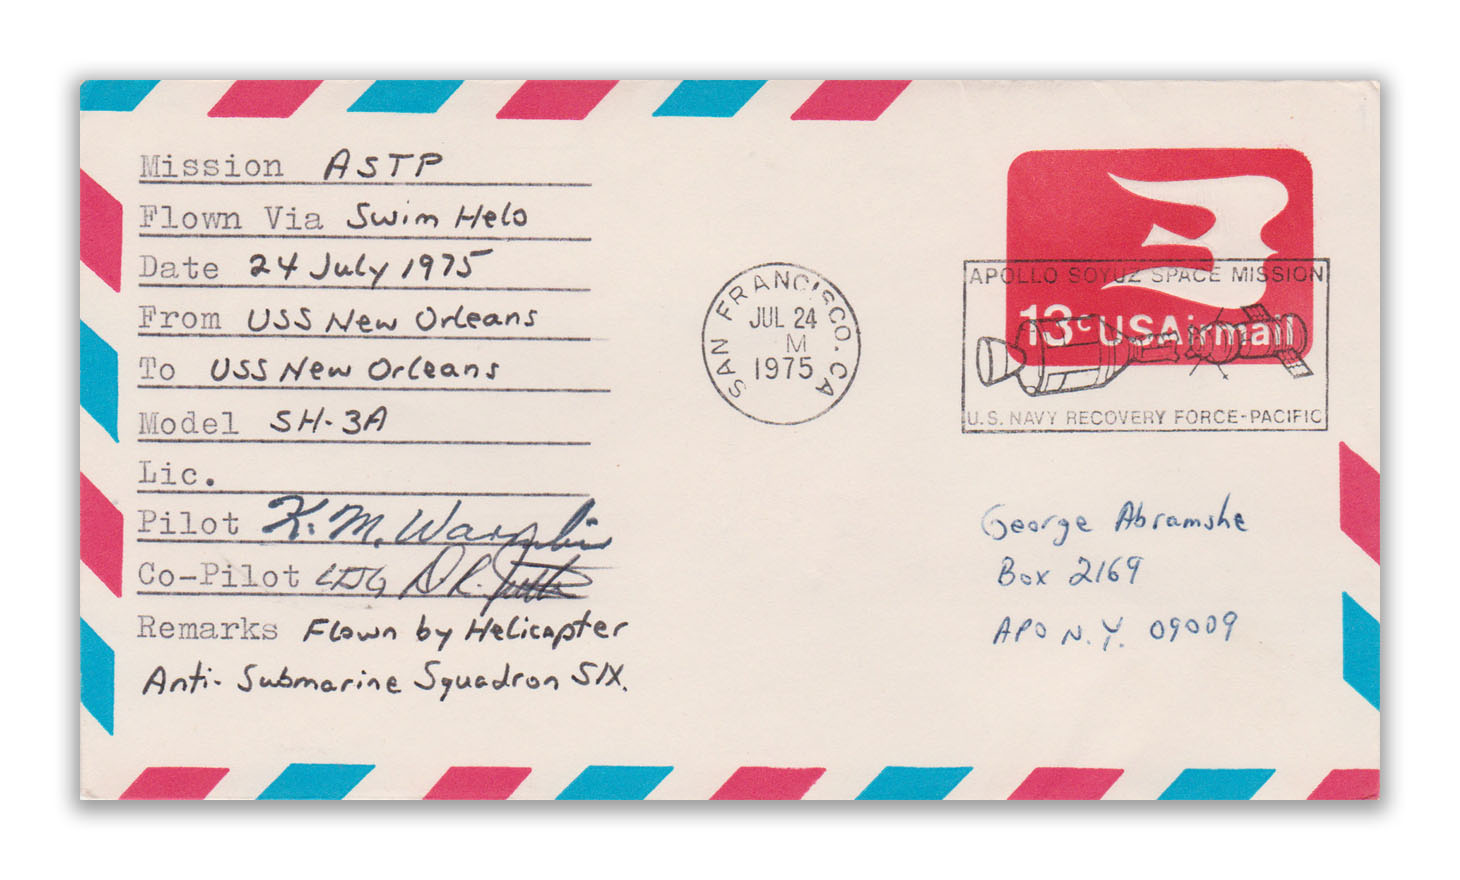 Mission ASTP
Flown Via Swim Helo
Date 24 July 1975
From USS New Orleans
To USS New Orleans
Model SH-3A
Lic.
Pilot K. M.
Co-Pilot LTJG D.R.
Remarks Flown by Helicopter
Anti-Submarine Squadron SIX.
SAN FRANCISCO, CA
JUL 24
M
1975
APOLLO SOYUZ SPACE MISSION
13c USAirmail
U.S. NAVY RECOVERY FORCE-PACIFIC
George Abramshe
Box 2169
APO N.Y. 09009